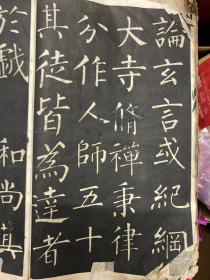 論玄言或紀綱
大寺脩禪秉律
分作人師五十
其徒皆為達者
於戲 和尚真